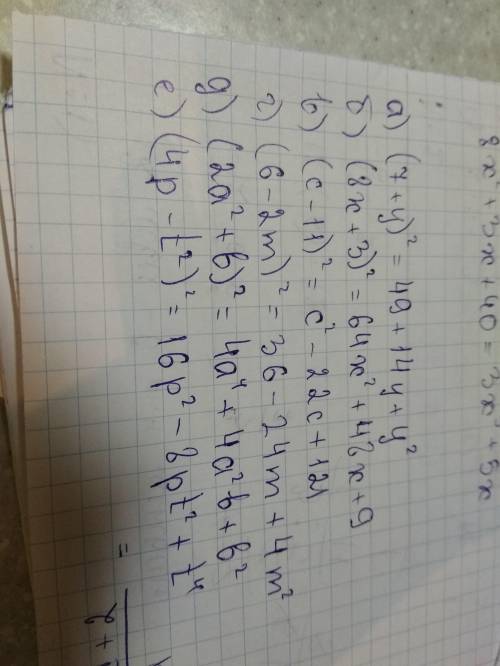 8x² + 5x + 40 = 3x² + 5x
а) (7+y)² = 49 + 14y + y²
б) (8x+3)² = 64x² + 48x + 9
в) (c - 11)² = c² - 22c + 121
г) (6 - 2m)² = 36 - 24m + 4m²
д) (2a² + b)² = 4a⁴ + 4a²b + b²
е) (4p - t²)² = 16p² - 8pt² + t⁴
=